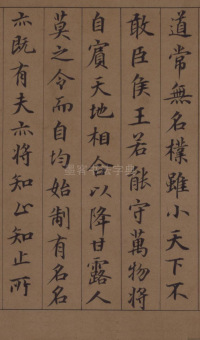 道常無名樸雖小天下不
敢臣侯王若能守萬物將
自賓天地相合以降甘露人
莫之令而自均始制有名名
亦既有夫亦將知止知止所